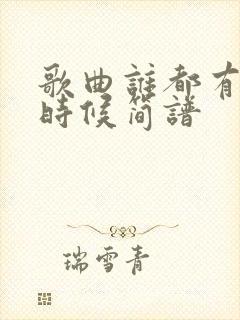 歌曲誰都有
時候簡譜
瑞雪青